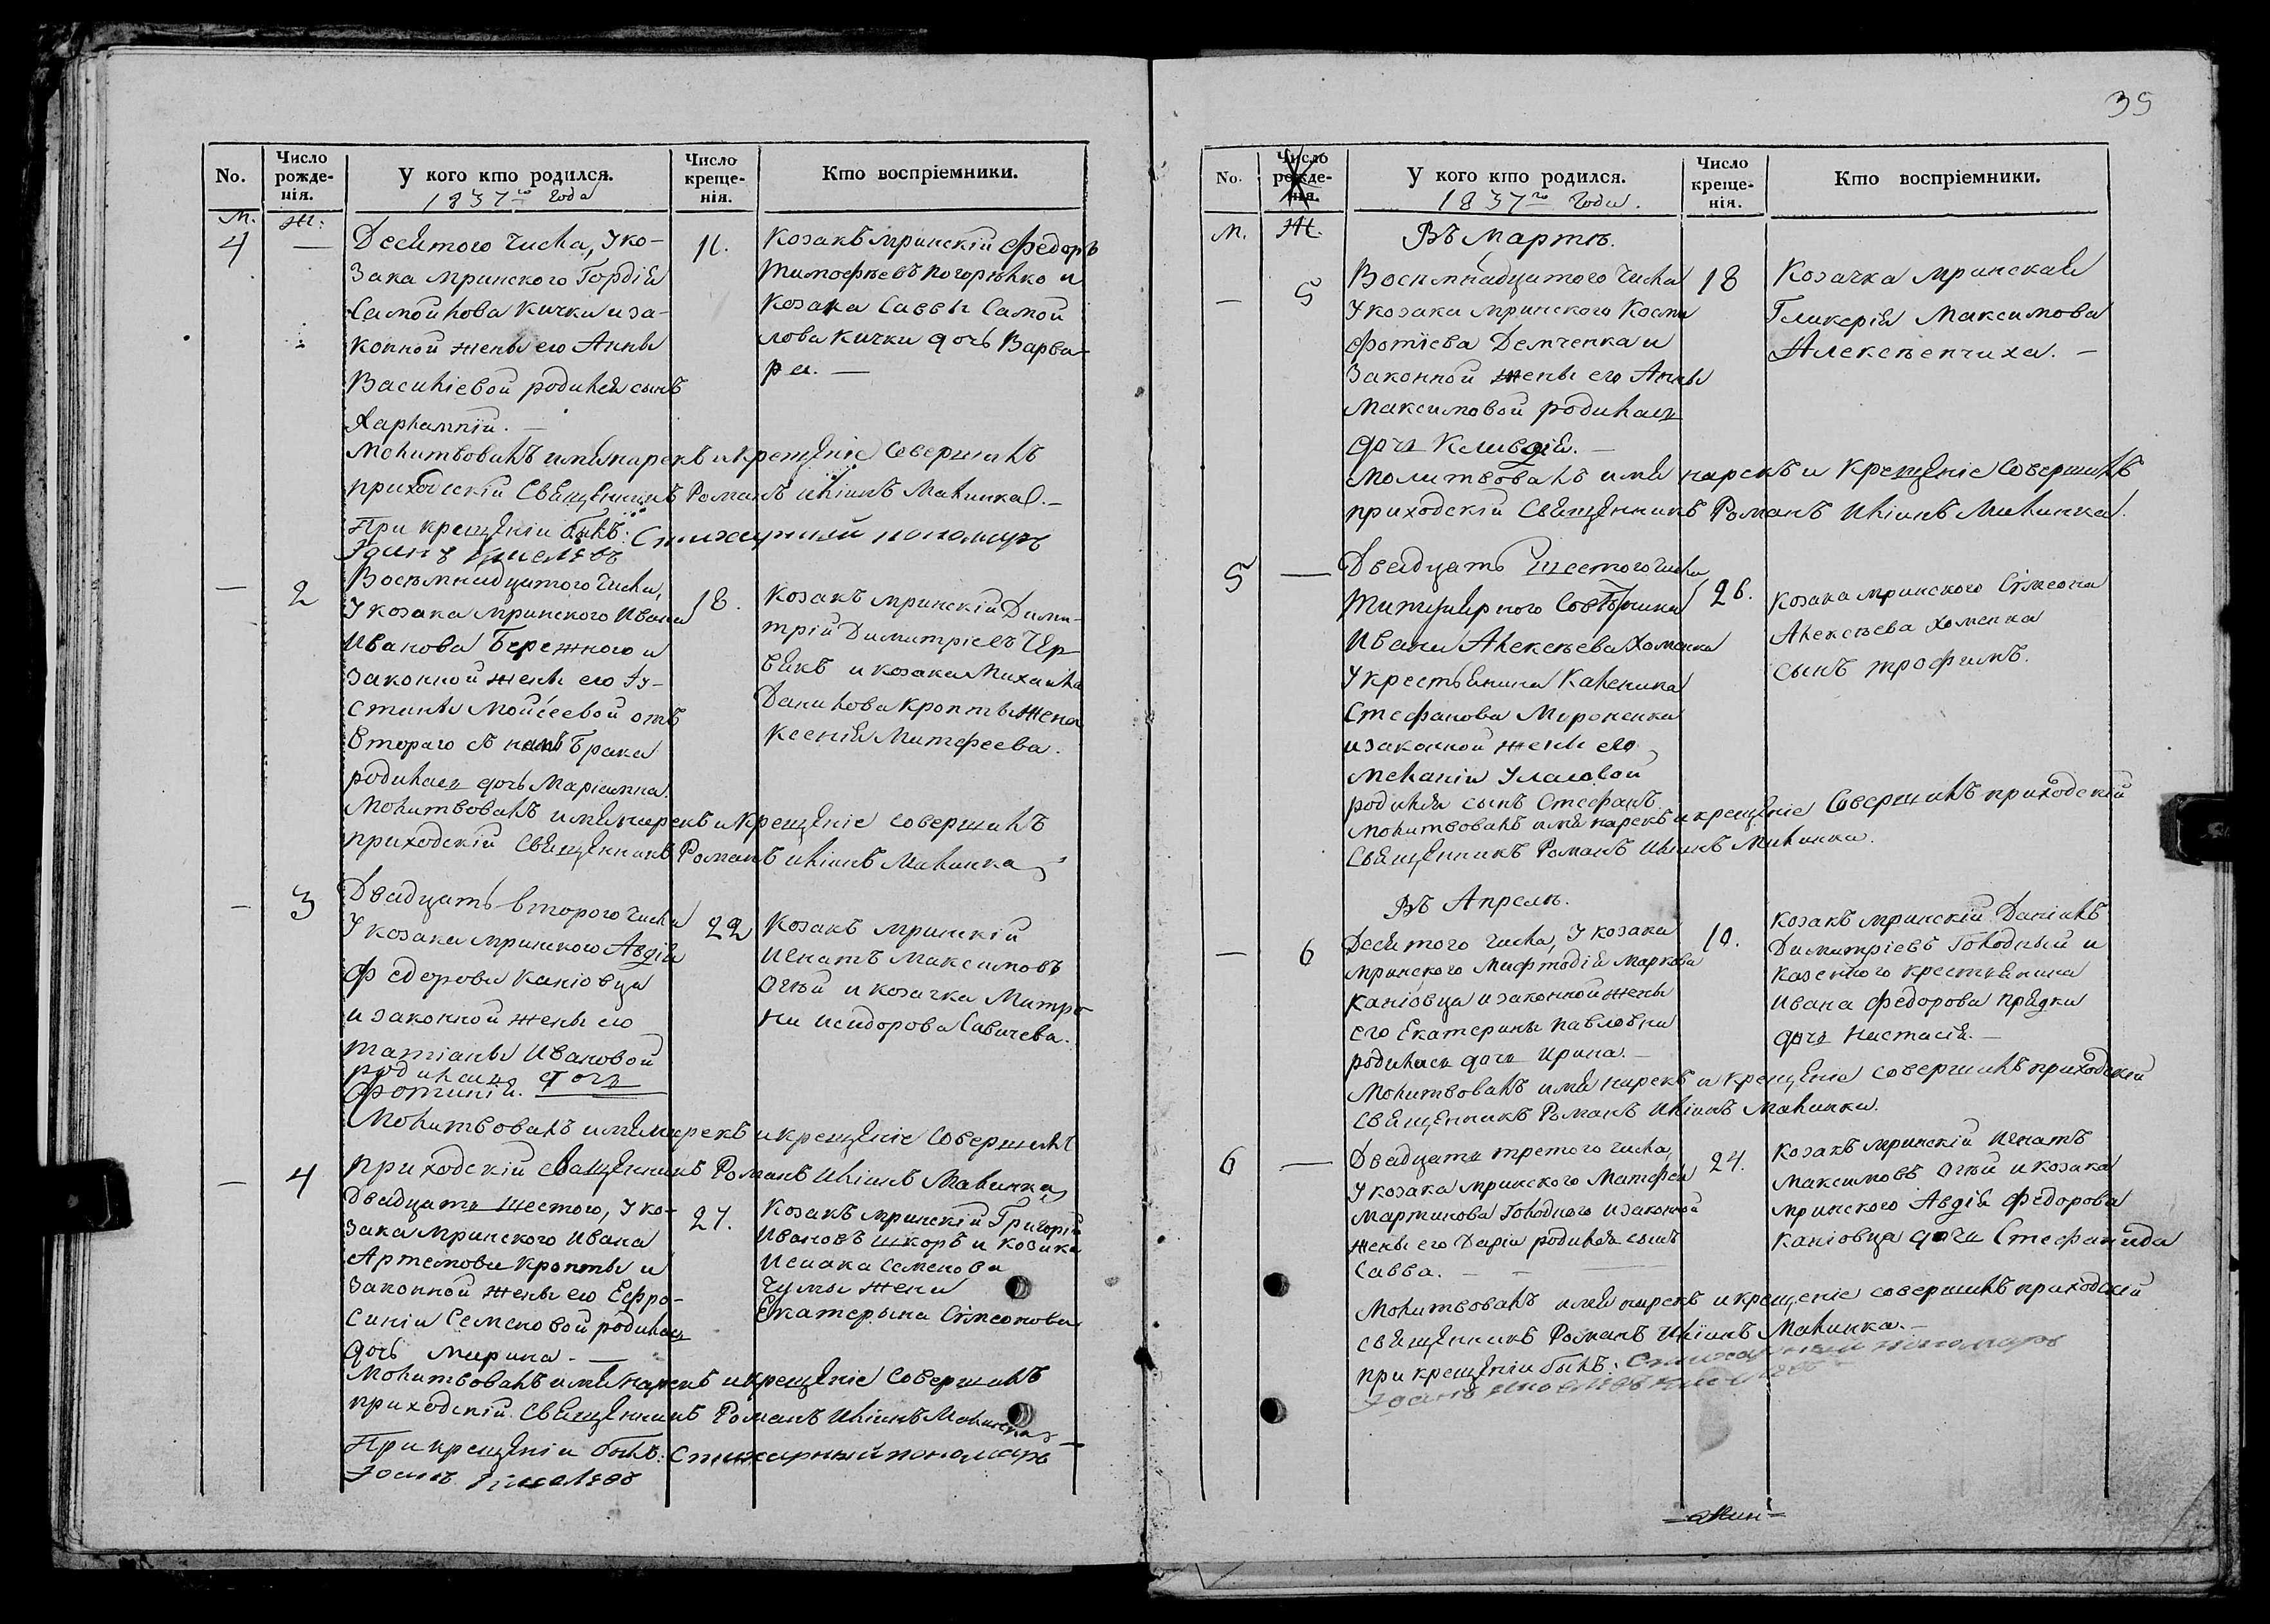 35
No.
Число рожде-нія.
У кого кто родился.
1837го года
Число креще-нія.
Кто воспріемники.
М.
Ж.
4
—
Десятого числа, У ко-
зака мринского Гордія
Самойлова Кички и за-
конной жены его Анны
Василіевой родился сынъ
Харлампій. —
11.
Козакъ мринскій Федоръ
Тимофѣевъ Погорѣлко и
козака Саввы Самой
лова Кички дочь Варва-
ра. —
Молитвовалъ имя нарекъ и крещеніе совершилъ
приходскій Священникъ Романъ Иліинъ Малинка. —
При крещеніи былъ: Стихарный пономарь
Іоаннъ
—
2
Восемнадцатого числа,
У козака мринского Ивана
Иванова Бережного и
законной жены его Іу-
стины Мойсеевой отъ
второго съ нимъ брака
родилась дочь Маріамна.
18.
Козакъ мринскій Дими-
трій Димитріевъ Чер-
вякъ и козака Михаила
Данилова Кропты жена
Ксенія Матфеева.
Молитвовалъ имя нарекъ и крещеніе совершилъ
приходскій Священникъ Романъ Иліинъ Малинка
—
3
Двадцать второго числа
У козака мринского Авдія
Федорова Каніовца
и законной жены его
Татіаны Ивановой
родилась дочь
Фотинія.
22
Козакъ мринскій
Игнатъ Максимовъ
Огій и козачка Матро
на Исидорова Савичева.
Молитвовалъ имя нарекъ и крещеніе совершилъ
приходскій священникъ Романъ Иліинъ Малинка
—
4
Двадцать шестого, У ко-
зака мринского Ивана
Артемова Кропты и
законной жены его Ефро-
синіи Семеновой родилась
дочь Марина. —
27.
Козакъ мринскій Григорій
Ивановъ Шкоръ и козака
Исаака Семенова
Чумы жена
Екатерина Симеонова
Молитвовалъ имя нарекъ и крещеніе совершилъ
приходскій Священникъ Романъ Иліинъ Малинка
При крещеніи былъ: Стихарный пономарь
Іоаннъ
No.
Число рожде-нія.
У кого кто родился.
1837го года.
Число креще-нія.
Кто воспріемники.
М.
Ж.
Въ Мартѣ.
—
5
Восемнадцатого числа
У козака мринского Косми
Фотіева Демченка и
законной жены его Анны
Максимовой родилась
дочь Клавдія. —
18
Козачка мринская
Гликерія Максимова
Алексѣенчиха. —
Молитвовалъ имя нарекъ и крещеніе совершилъ
приходскій Священникъ Романъ Иліинъ Малинка.
5
—
Двадцать Шестого числа
Титулярного Совѣтника
Ивана Алексѣева Хоменка
У крестьянина Каленика
Стефанова Мироненка
и законной жены его
Меланіи Уласовой
родился сынъ Стефанъ.
26.
Козака мринского Сімеона
Алексѣева Хоменка
сынъ Трофимъ.
Молитвовалъ имя нарекъ и крещеніе Совершилъ приходскій
Священникъ Романъ Иліинъ Малинка.
Въ Апрелѣ.
—
6
Десятого числа, У козака
мринского Мифтодія Маркова
Каніовца и законной жены
его Екатерины Павловны
родилась дочь Ирина. —
10.
Козакъ мринскій Даніилъ
Димитріевъ Голодный и
казенного крестьянина
Ивана Федорова Прядки
дочь Настасія. —
Молитвовалъ имя нарекъ и крещеніе совершилъ приходскій
Священникъ Романъ Иліинъ Малинка.
6
—
Двадцать третого числа,
У козака мринского Матфея
Мартинова Голодного и законной
жены его Даріи родился сынъ
Савва. —
24.
Козакъ мринскій Игнатъ
Максимовъ Огій и козака
мринского Авдія Федорова
Каніовца дочь Стефанида
Молитвовалъ имя нарекъ и крещеніе совершилъ приходскій
священникъ Романъ Иліинъ Малинка. —
при крещеніи былъ: Стихарный пономарь
Іоаннъ